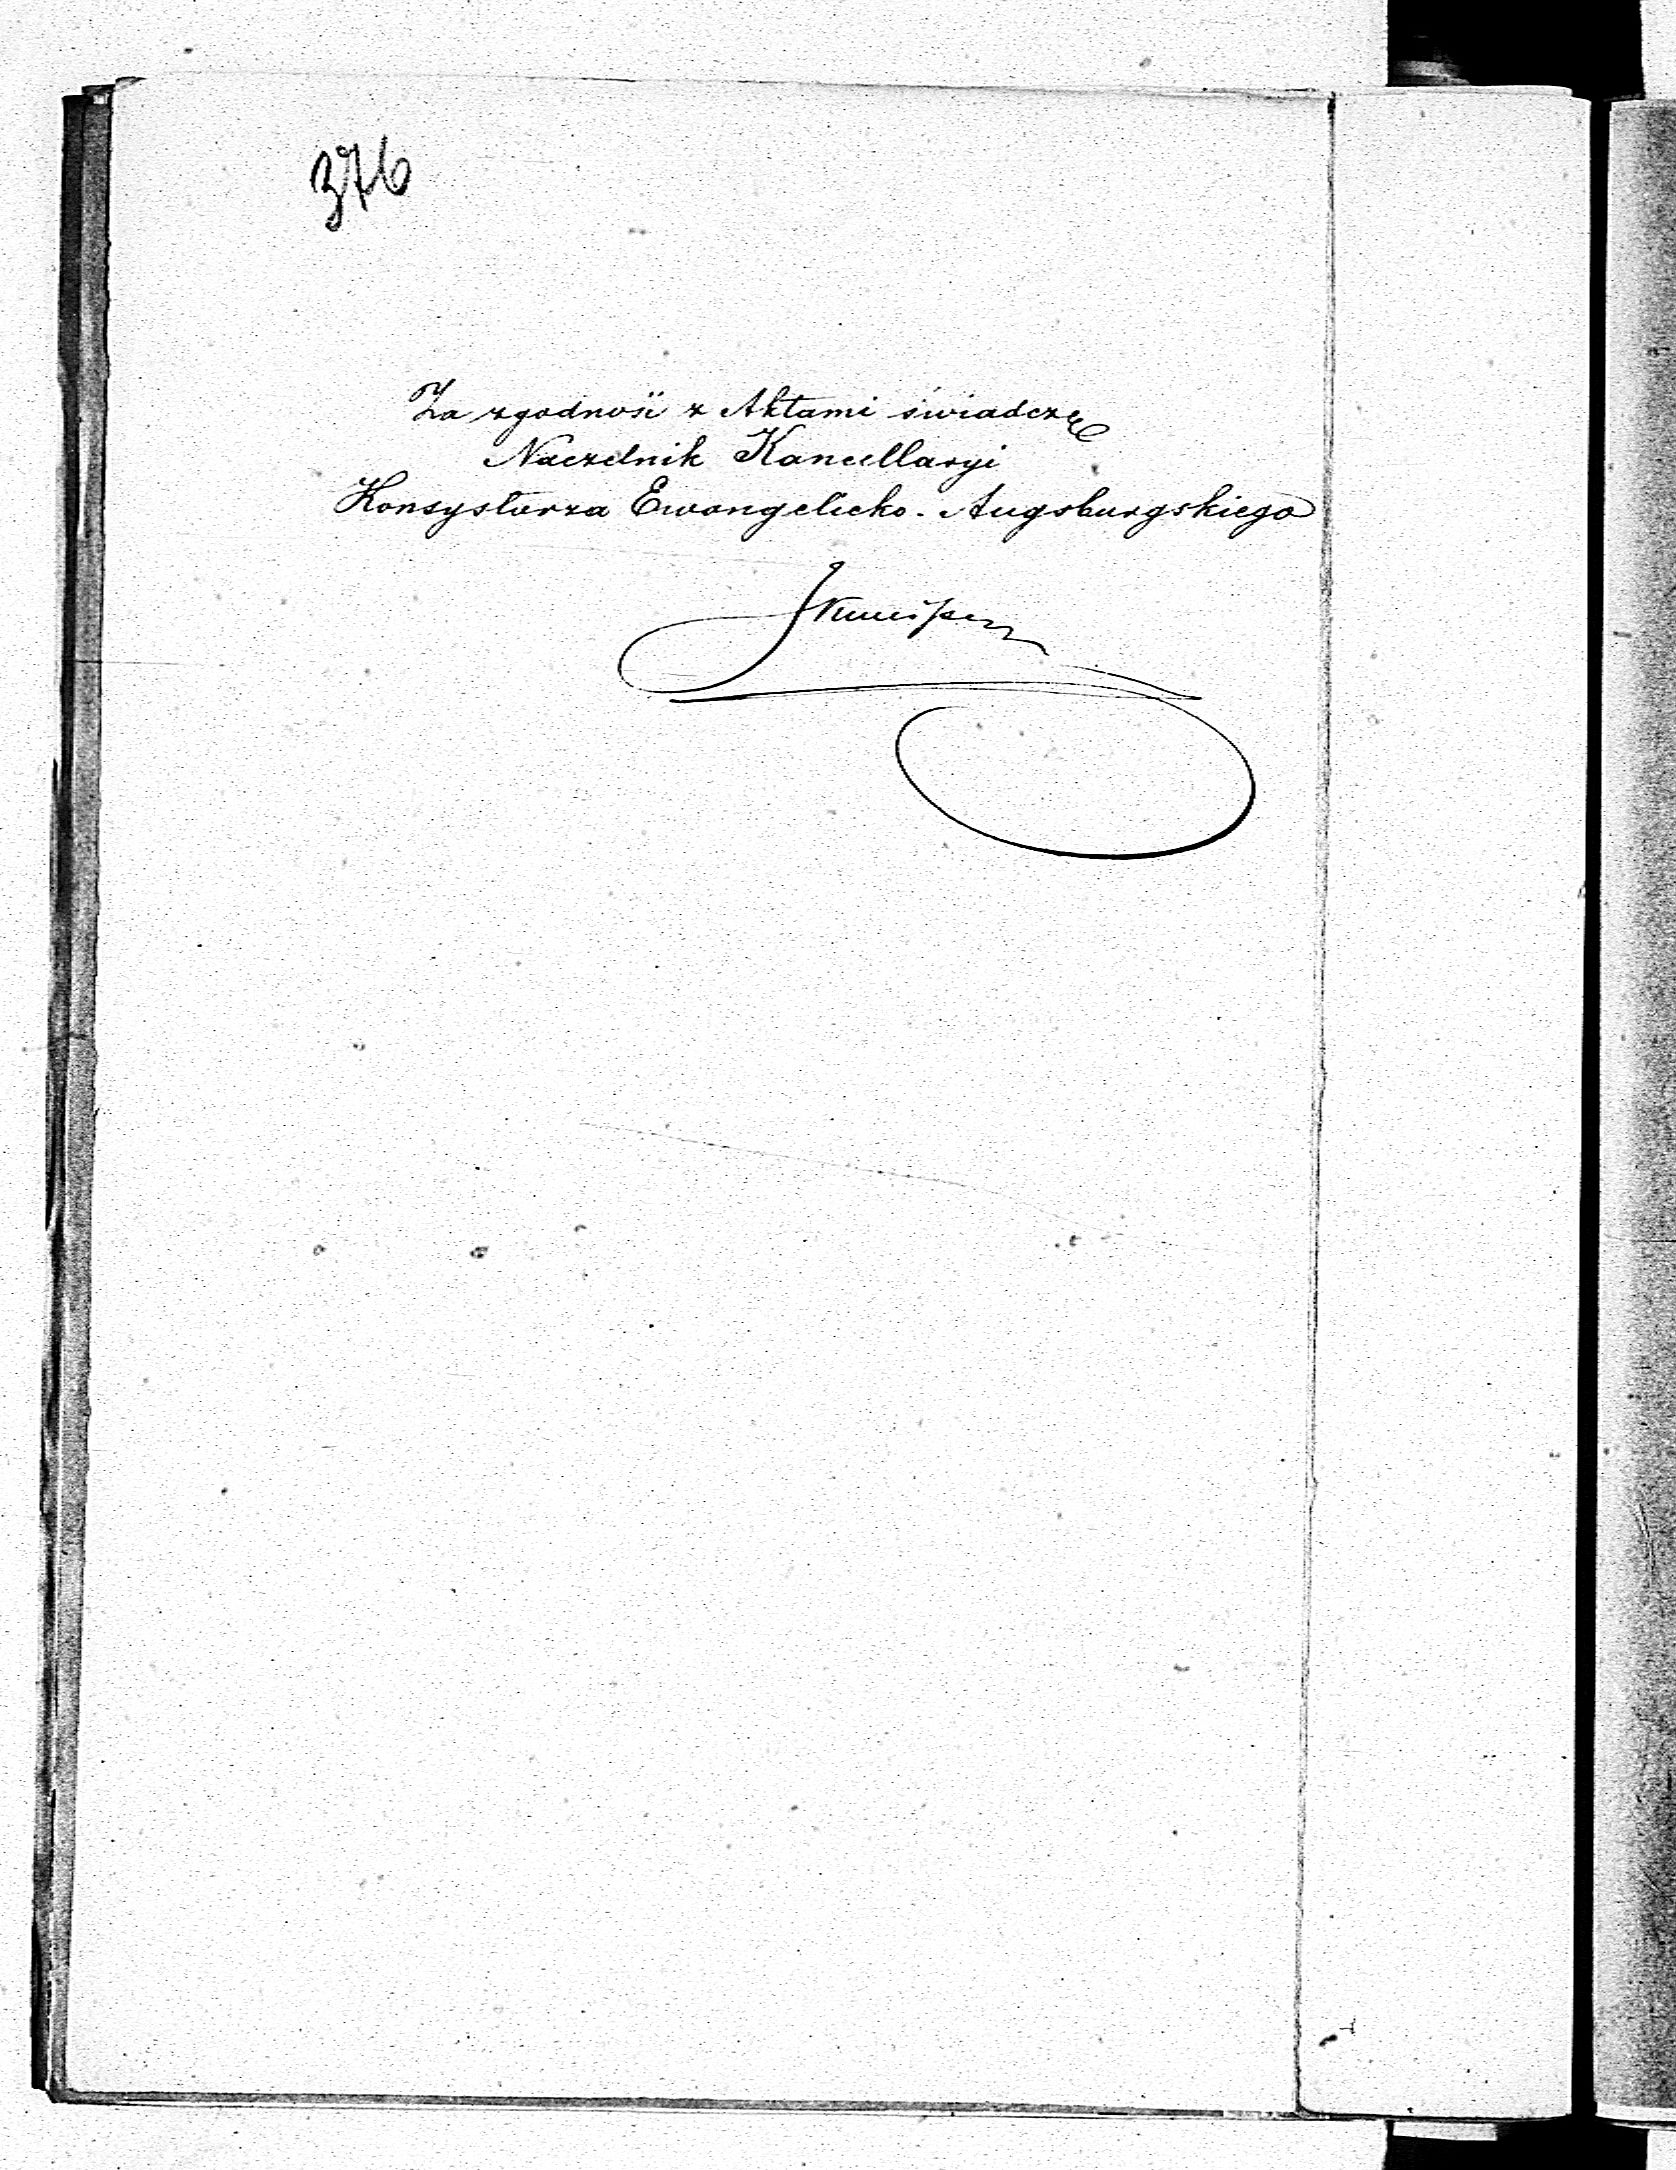 376
Za zgodność z Aktami świadczę
Naczelnik Kancellaryi
Konsystorza Ewangelicko-Augsburgskiego